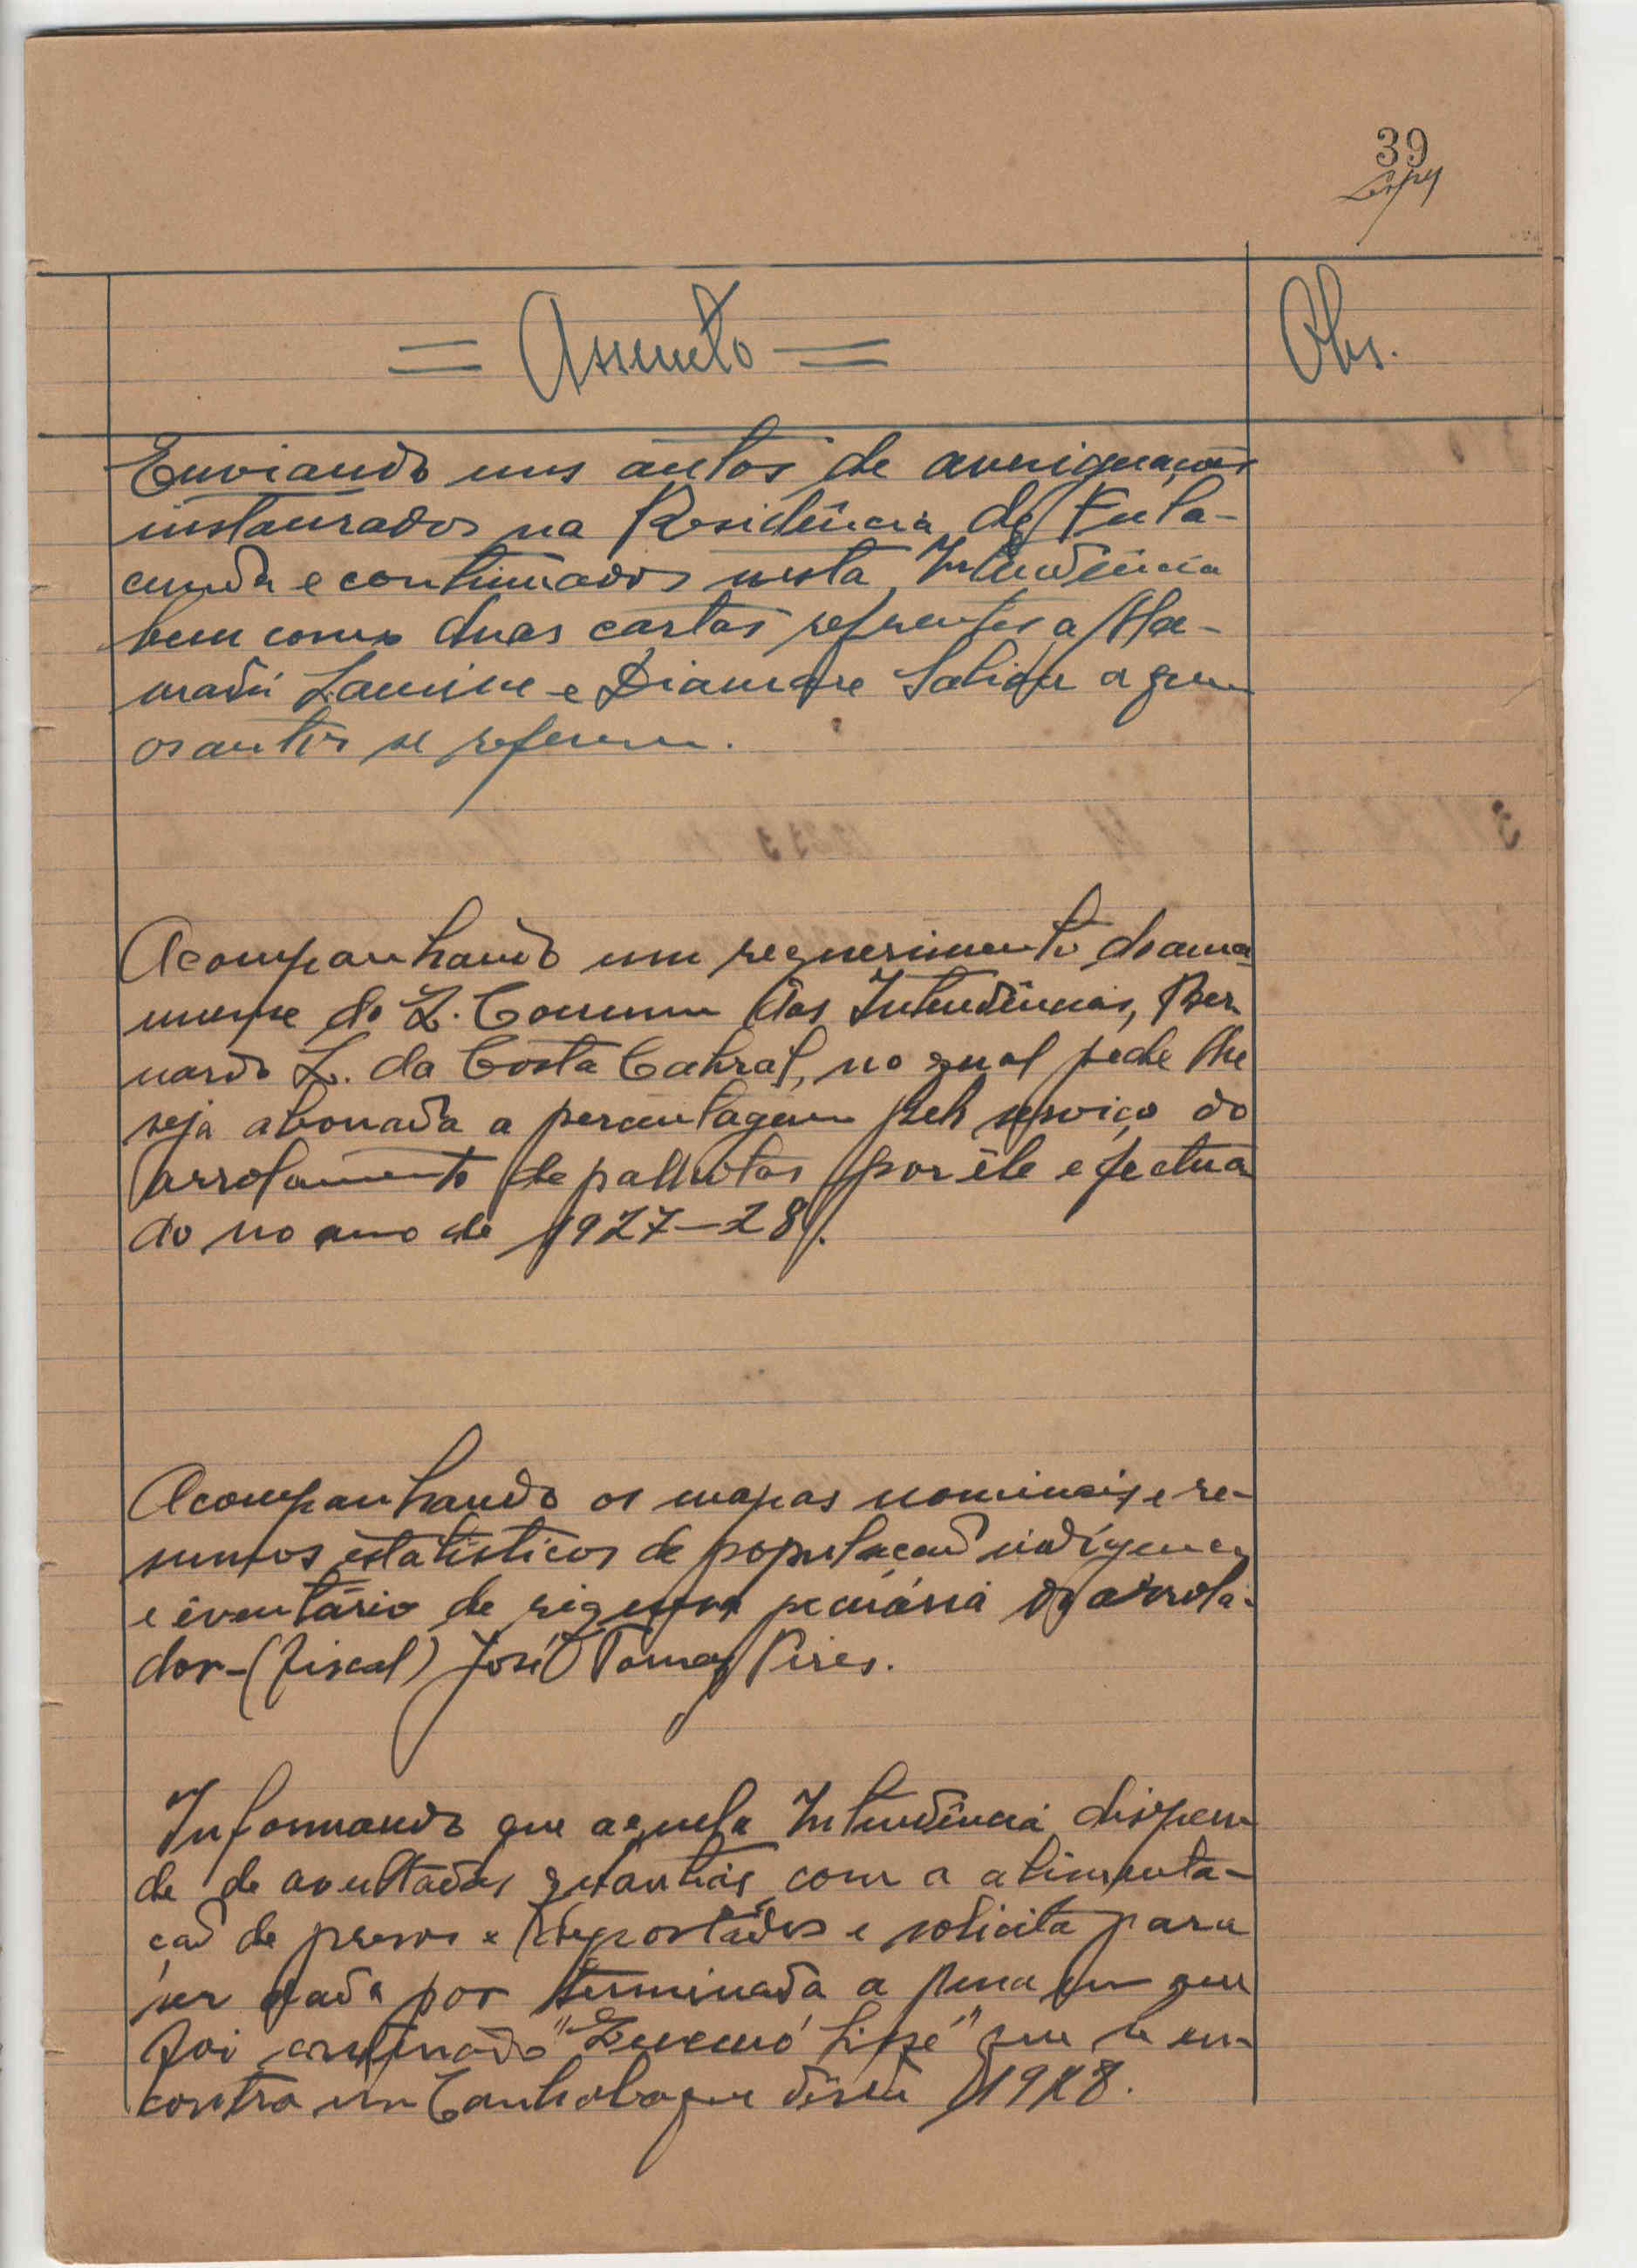 39
= Assunto =
Obs.
Enviando uns autos de averiguações
instaurados na Residência de Fula-
cunda e continuados nesta Intendência
bem como duas cartas referentes a Ma-
madú Lamine e a quem
os autos se referem.
Acompanhando um requerimento do ama-
nuense do Q. Comum das Intendências, Ber-
nardo L. da Costa Cabral, no qual pede lhe
seja abonada a percentagem pelo serviço do
arrolamento de palhotas por êle efectua
do no ano de 1927-28.
Acompanhando os mapas nominais e re-
sumos estatísticos de população indígena
e inventário de riqueza pecuária do arrola-
dor-(fiscal) José Tomaz Pires.
Informando que aquela Intendência dispen
de de avultadas quantias com a alimenta-
ção de presos e deportados e solicita para
ser dada por terminada a pena em que
foi que se en-
contra em desde 1928.